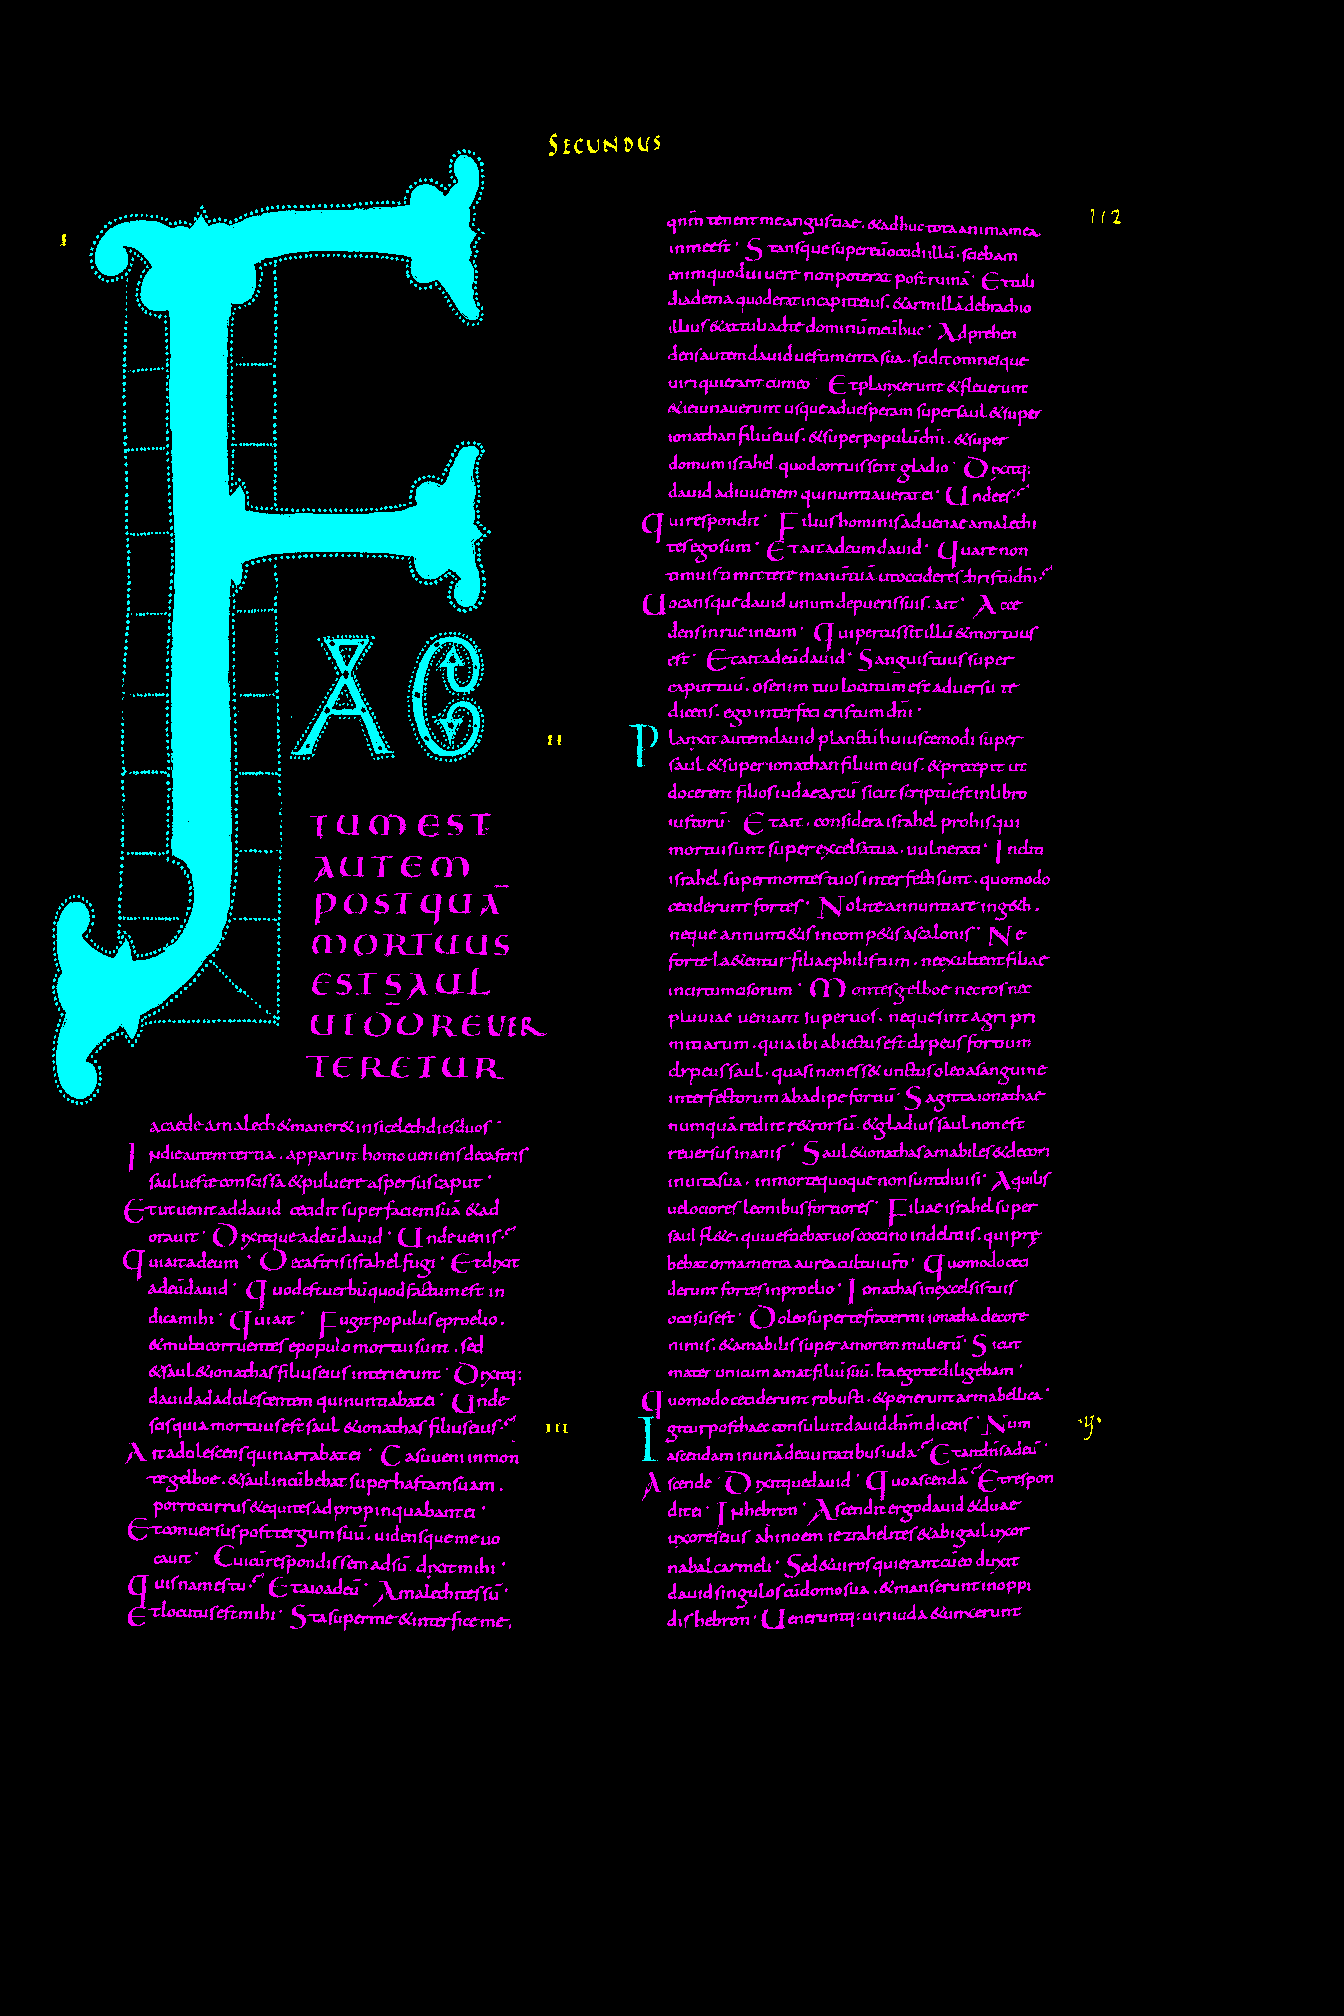 SECUNDUS
112
I
FAC
TUM EST
AUTEM
POSTQUĀ
MORTUUS
EST SAUL
UT DO REUER
TERETUR
acaede amalech & maner& in sicelech dies duos·
In die autem tertia. apparuit homo ueniens de castris
saul ueste conscissa & puluere aspersus caput·
Et ut uenit ad dauid cecidit super faciem suā & ad
orauit· Dixitque ad eū dauid· Unde uenis·
Qui ait ad eum· De castris israhel fugi· Et dixit
ad eū dauid· Quod est uerbū quod factum est in
dica mihi· Qui ait· Fugit populus e proelio.
& multi corruentes e populo mortui sunt. sed
& saul & ionathas filius eius interierunt· Dixitq:
dauid ad adulescentem qui nuntiabat ei· Unde
scis quia mortuus est saul & ionathas filius eius·
Ait adolescens qui narrabat ei· Casu ueni in mon
te gelboe. & saul incūbebat super hastam suam.
porro currus & equites adpropinquabant ei·
Et conuersus post tergum suū. uidensque me uo
cauit· Cui cū respondissem adsū. dixit mihi·
Quisnam es tu· Et aio ad eū· Amalechites sū·
Et locutus est mihi· Sta super me & interfice me.
qnm̄ tenent me angustiae. & adhuc tota anima mea
in me est· Stansque super eū occidi illū. sciebam
enim quod uiuere non poterat post ruinā· Et tuli
diadema quod erat in capite eius. & armillā de brachio
illius & attuli ad te dominū meū huc· Adprehen
dens autem dauid uestimenta sua. scidit omnesque
uiri qui erant cum eo· Et planxerunt & fleuerunt
& ieiunauerunt usque ad uesperam super saul & super
ionathan filiū eius. & super populū dn̄i. & super
domum israhel quod corruissent gladio· Dixitq:
dauid ad iuuenem qui nuntiauerat ei· Unde es·
Qui respondit· Filius hominis aduenae amalechi
tes ego sum· Et ait ad eum dauid· Quare non
timuisti mittere manū tuā ut occideres christū dn̄i·
Uocansque dauid unum de pueris suis. ait· Acce
dens inrue in eum· Qui percussit illū & mortuus
est· Et ait ad eū dauid· Sanguis tuus super
caput tuū. os enim tuū locutum est aduersū te
dicens. ego interfeci cristum dn̄i·
II
Planxit autem dauid planctū huiuscemodi super
saul & super ionathan filium eius. & precepit ut
docerent filios iudae arcū sicut scriptū est in libro
iustorū· Et ait. considera israhel pro his qui
mortui sunt super excelsa tua. uulnerati· Incliti
israhel super montes tuos interfecti sunt. quomodo
ceciderunt fortes· Nolite annuntiare in g&h.
neque annunti&is in comp&is ascalonis· Ne
forte la&entur filiae philistium. ne exultent filiae
incircumcisorum· Montes gelboe nec ros nec
pluuiae ueniant super uos. neque sint agri pri
mitiarum. quia ibi abiectus est clypeus fortium
clypeus saul. quasi non ess& unctus oleo a sanguine
interfectorum ab adipe fortiū· Sagitta ionathae
numquā rediit r&rorsū. & gladius saul non est
reuersus inanis· Saul & ionathas amabiles & decori
in uita sua. in morte quoque non sunt diuisi· Aquilis
uelociores leonibus fortiores· Filiae israhel super
saul fl&e. qui uestiebat uos coccino in deliciis. qui pre
bebat ornamenta aurea cultui ur̄o· Quomodo ceci
derunt fortes in proelio· Ionathas in excelsis tuis
occisus est· Doleo super te frater mi ionatha decore
nimis. & amabilis super amorem mulierū· Sicut
mater unicum amat filiū suū. ita ego te diligebam·
Quomodo ceciderunt robusti. & perierunt arma bellica·
III
Igitur post haec consuluit dauid dn̄m dicens· Num
ascendam in unā de ciuitatibus iuda· Et ait dn̄s ad eū·
Ascende· Dixitque dauid· Quo ascendā· Et respon
dit ei· In hebron· Ascendit ergo dauid & duae
uxores eius ahinoem iezrahelites & abigail uxor
nabal carmeli· Sed & uiros qui erant cū eo duxit
dauid singulos cū domo sua. & manserunt in oppi
dis hebron· Ueneruntq: uiri iuda & unxerunt